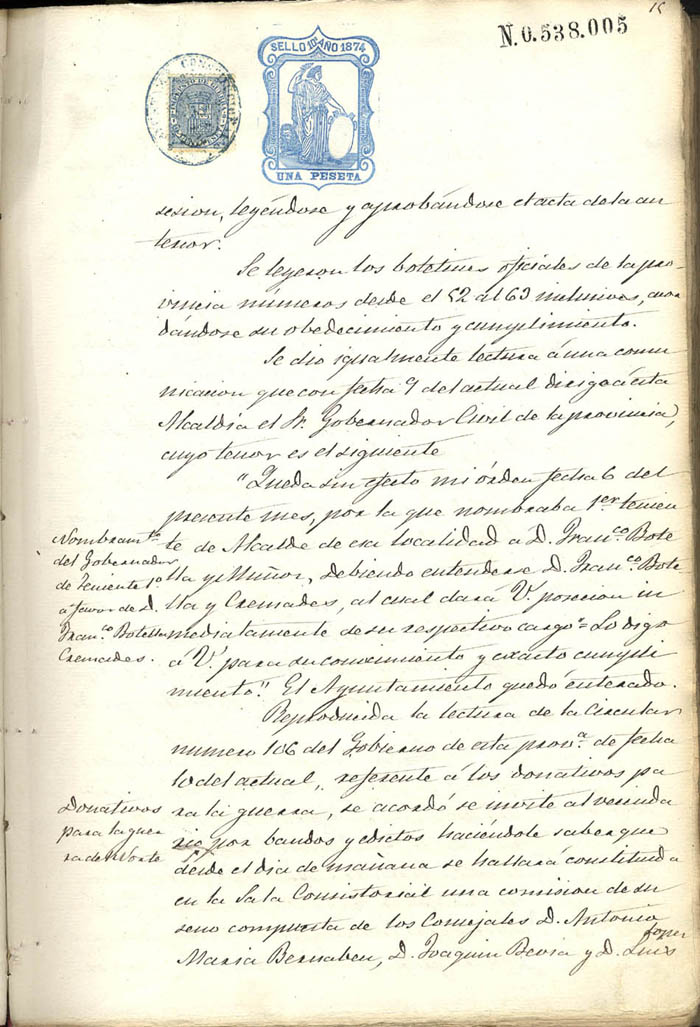 15
N.0.538.005
SELLO 10º AÑO 1874
UNA PESETA
sesion, leyéndose y aprobándose el acta de la an
terior.
Se leyeron los boletines oficiales de la pro-
vincia números desde el 52 al 63 inclusives, acor
dándose su obedecimiento y cumplimiento.
Se dio igualmente lectura á una comu
nicacion que con fecha 9 del actual dirige á esta
Alcaldía el Sr. Gobernador Civil de la provincia,
cuyo tenor es el siguiente
"Queda sin efecto mi órden fecha 6 del
presente mes, por la que nombraba 1er tenien
te de Alcalde de esa localidad á D. Franco. Bote
lla y Muñoz, debiendo entenderse D. Franco. Bote
lla y Cremades, al cual dará V. posesion in
mediatamente de su respectivo cargo = Lo digo
á V. para su conocimiento y exacto cumpli
miento". El Ayuntamiento quedó enterado.
Nombramto.
del Gobernador
de Teniente 1º
a favor de D.
Franco. Botella
Cremades.
Reproducida la lectura de la Circular
número 106 del Gobierno de esta prova. de fecha
10 del actual, referente á los donativos pa
ra la guerra, se acordó se invite al vecinda
rio por bandos y edictos haciéndole saber que
desde el dia de mañana se hallará constituida
en la Sala Consistorial una comision de su
seno compuesta de los Concejales D. Antonio
Maria Bernabeu, D. Joaquin Bevia y D. Luis
Lopez
Donativos
para la guer
ra del Norte